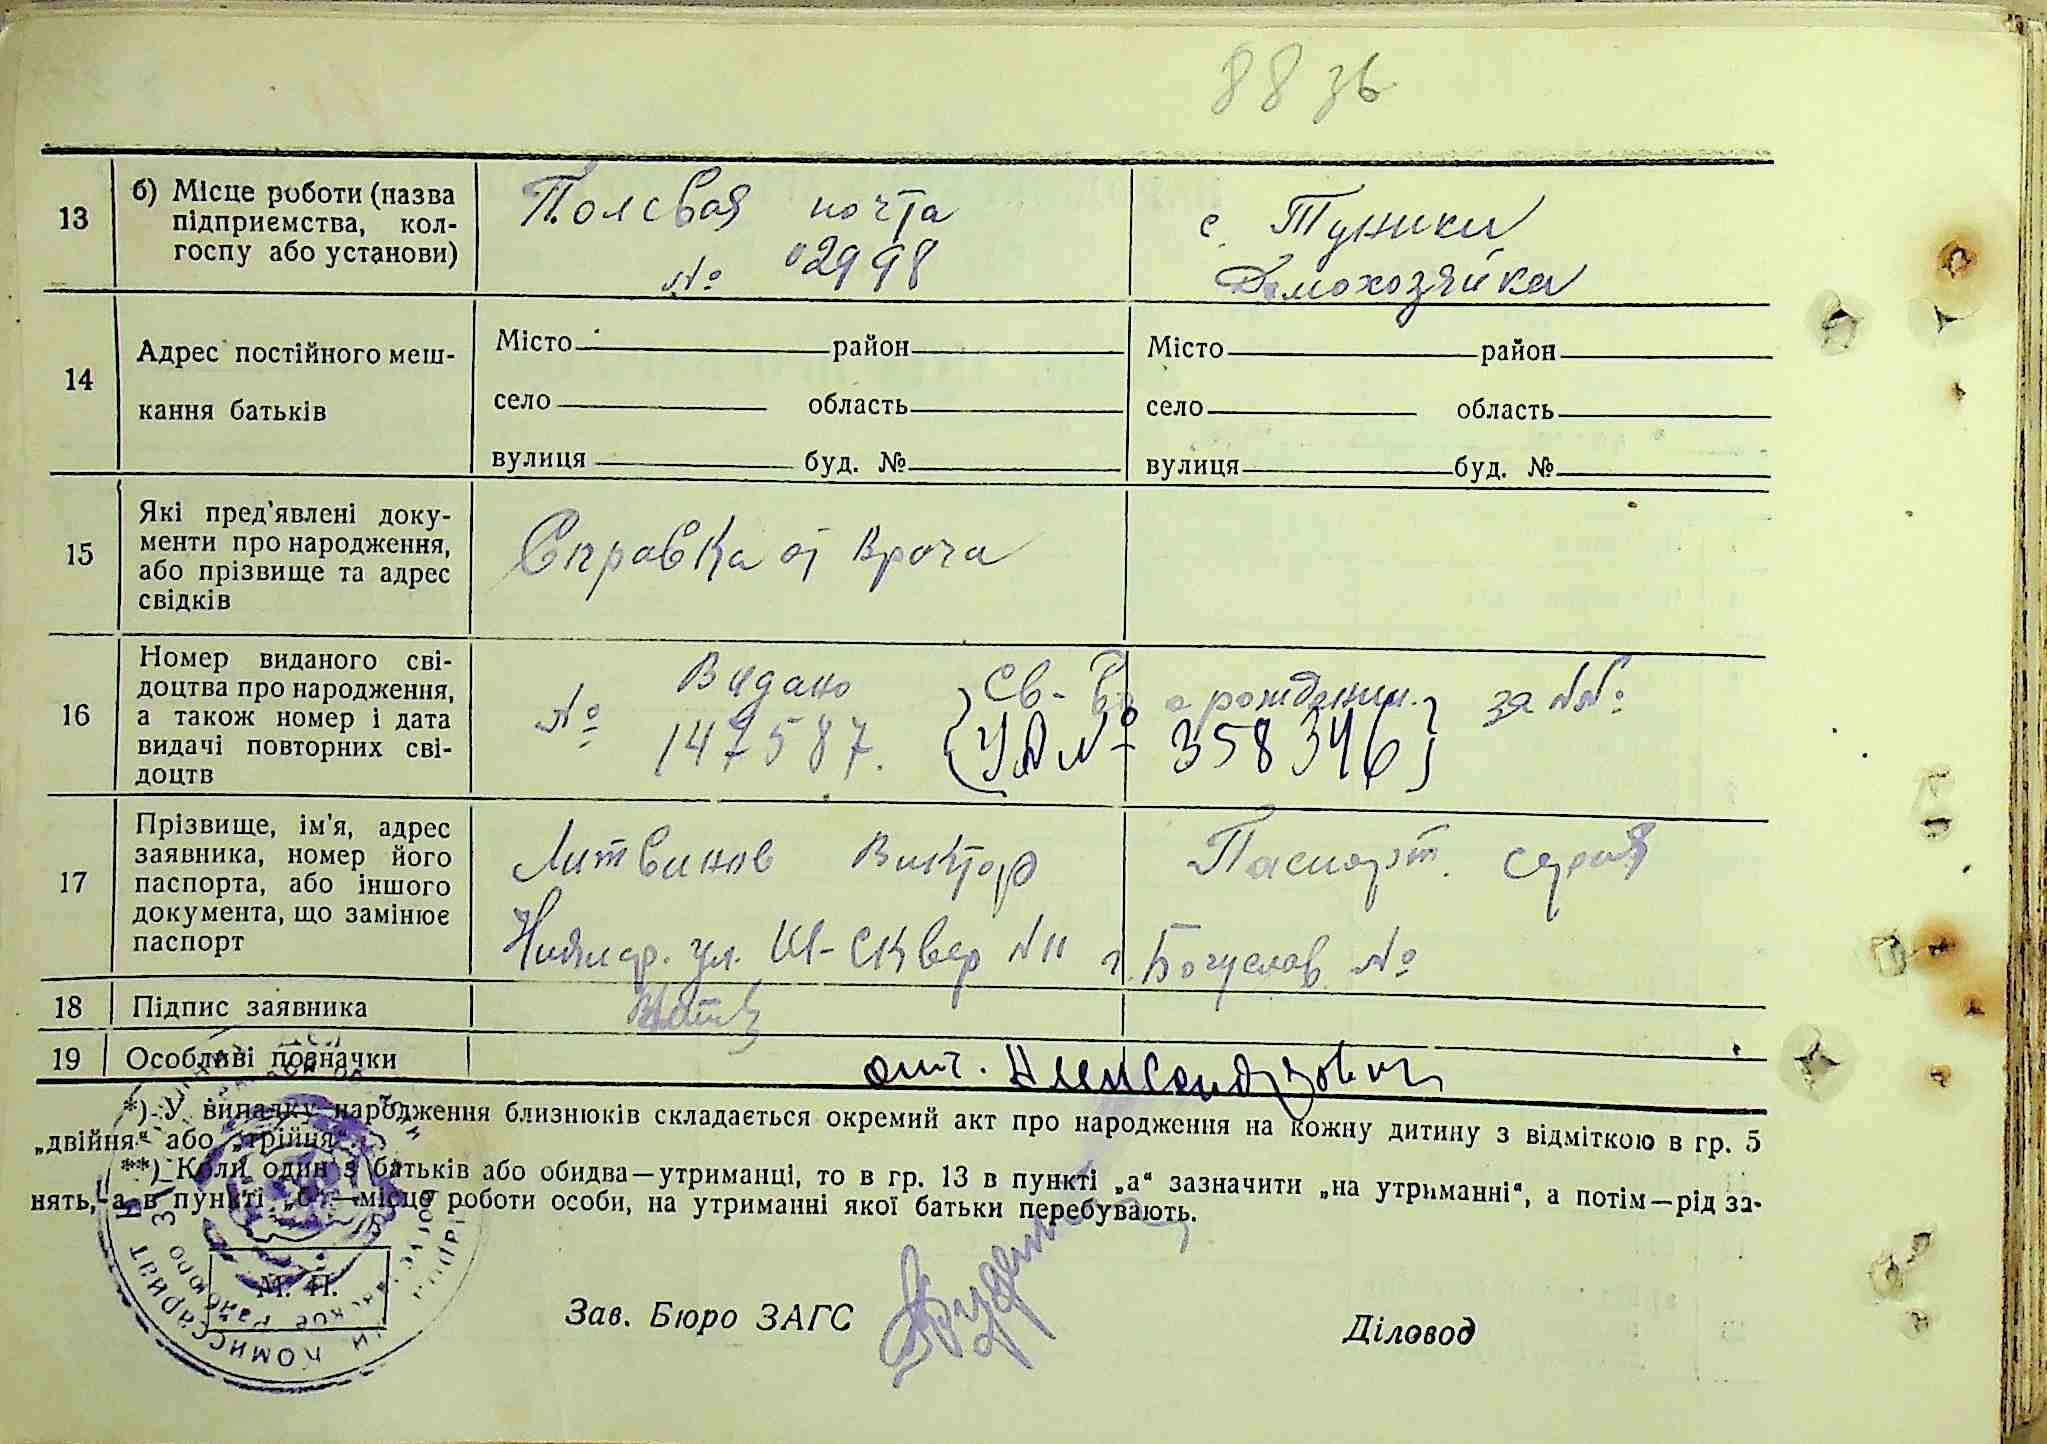 88 зв
13
б) Місце роботи (назва
підприємства, кол-
госпу або установи)
Полевая почта
№ 02998
с. Туники
Домохозяйка
14
Адрес постійного меш-
кання батьків
Місто район
село область
вулиця буд. №
Місто район
село область
вулиця буд. №
15
Які пред'явлені доку-
менти про народження,
або прізвище та адрес
свідків
Справка от врача
16
Номер виданого сві-
доцтва про народження,
а також номер і дата
видачі повторних сві-
доцтв
Видано Св-во о рождении за №№
№ 147587. {УА № 358346}
17
Прізвище, ім'я, адрес
заявника, номер його
паспорта, або іншого
документа, що замінює
паспорт
Литвинов Виктор
ул. Ш-сквер №11 г. Богуслав №
Паспорт. серия
18
Підпис заявника
19
Особливі позначки
отч. Александрович
*) У випадку народження близнюків складається окремий акт про народження на кожну дитину з відміткою в гр. 5
„двійня“ або „трійня“.
**) Коли один з батьків або обидва—утриманці, то в гр. 13 в пункті „а“ зазначити „на утриманні“, а потім—рід за-
нять, а в пункті „б“—місце роботи особи, на утриманні якої батьки перебувають.
М. П.
Зав. Бюро ЗАГС
Діловод